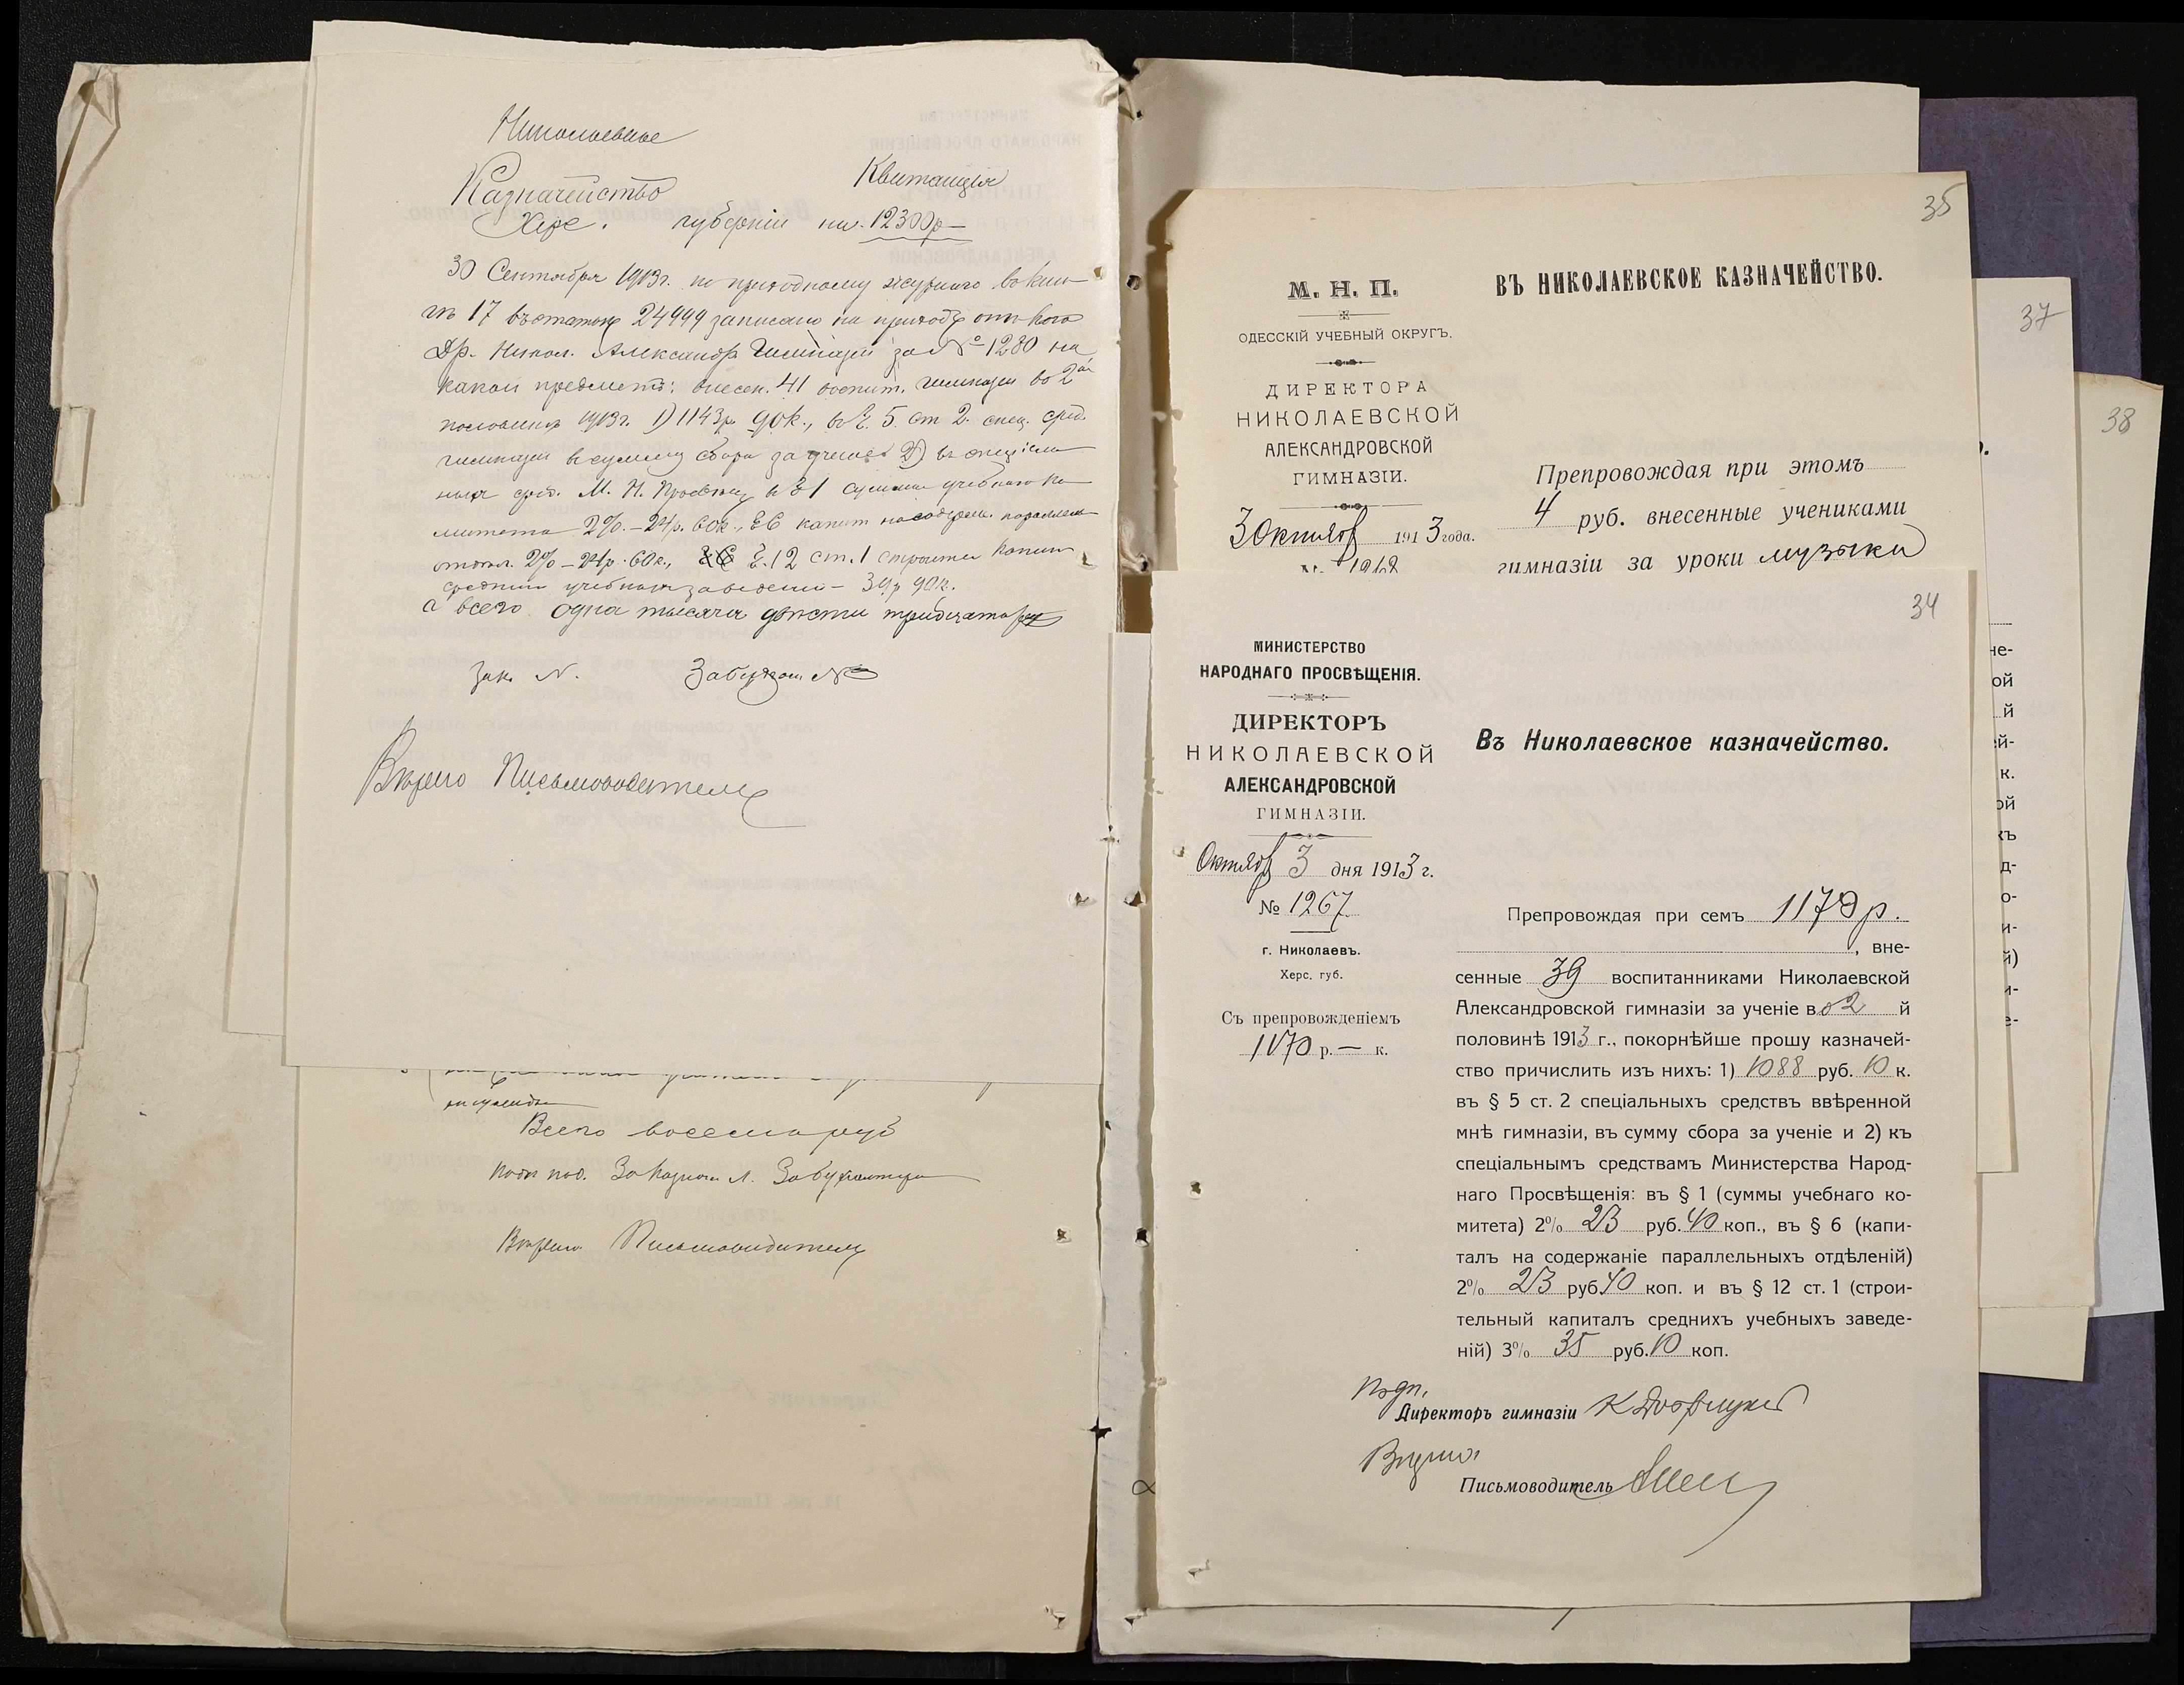 Николаевское
Казначейство
Квитанція
Херс. губерніи на 1230 р —
30 Сентября 1913 г. по приходному журналу въ кни-
гѣ 17 въ статьѣ 24999 записано на приходъ отъ кого
Др. Никол. Александр Гимназіи за № 1230 на
какой предметъ: внесен. 41 воспит. гимназіи во 2ой
половинѣ 1913 г. 1) 1143 р. 90 к., в § 5 ст 2 спец. сред.
гимназіи в сумму сбора за ученіе 2) въ спеціаль
ныя сред. М. Н. Просвѣщ в § 1 суммы учебнаго ко
митета 2% — 24 р. 60 к., § 6 капит на содерж. параллел
отдѣл. 2% — 24 р. 60 к., § 12 ст. 1 строител капит
средних учебных заведеній — 36 р 90 к.
а всего одна тысяча двѣсти тридцать руб
Зак. N. Забухгалт N
Вѣрно Письмоводитель
Всего восемь руб
Подп под. За Казнач Л. За бухгалтера
Вѣрно Письмоводитель
35
М. Н. П.
ОДЕССКІЙ УЧЕБНЫЙ ОКРУГЪ.
ДИРЕКТОРА
НИКОЛАЕВСКОЙ
АЛЕКСАНДРОВСКОЙ
ГИМНАЗІИ.
3 Октября 1913 года.
№ 1268
ВЪ НИКОЛАЕВСКОЕ КАЗНАЧЕЙСТВО.
Препровождая при этомъ
4 руб. внесенные учениками
гимназіи за уроки музыки
34
МИНИСТЕРСТВО
НАРОДНАГО ПРОСВѢЩЕНІЯ.
ДИРЕКТОРЪ
НИКОЛАЕВСКОЙ
АЛЕКСАНДРОВСКОЙ
ГИМНАЗІИ.
Октября 3 дня 1913 г.
№ 1267
г. Николаевъ.
Херс. губ.
Съ препровожденіемъ
1170 р. — к.
Въ Николаевское казначейство.
Препровождая при семъ 1170 р.
, вне-
сенные 39 воспитанниками Николаевской
Александровской гимназіи за ученіе во 2 й
половинѣ 1913 г., покорнѣйше прошу казначей-
ство причислить изъ нихъ: 1) 1088 руб. 10 к.
въ § 5 ст. 2 спеціальныхъ средствъ ввѣренной
мнѣ гимназіи, въ сумму сбора за ученіе и 2) къ
спеціальнымъ средствамъ Министерства Народ-
наго Просвѣщенія: въ § 1 (суммы учебнаго ко-
митета) 2% 23 руб. 40 коп., въ § 6 (капи-
талъ на содержаніе параллельныхъ отдѣленій)
2% 23 руб. 40 коп. и въ § 12 ст. 1 (строи-
тельный капиталъ среднихъ учебныхъ заведе-
ній) 3% 35 руб. 10 коп.
Подп.
Директоръ гимназіи
Вѣрно:
Письмоводитель
37
38
не-
ой
й
ей-
к.
ой
къ
д-
о-
и-
й)
и-
е-